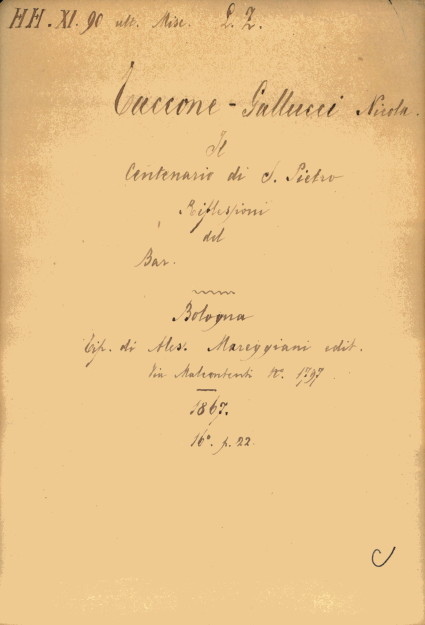 HH. XI. 90 ult. Misc. L. Z.
Taccone-Gallucci Nicola.
Il
Centenario di S. Pietro
Riflessioni
del
Bar.
Bologna
Tip. di Ales. Mareggiani edit.
Via Malcontenti N°. 1797
1867.
16°. p. 22.